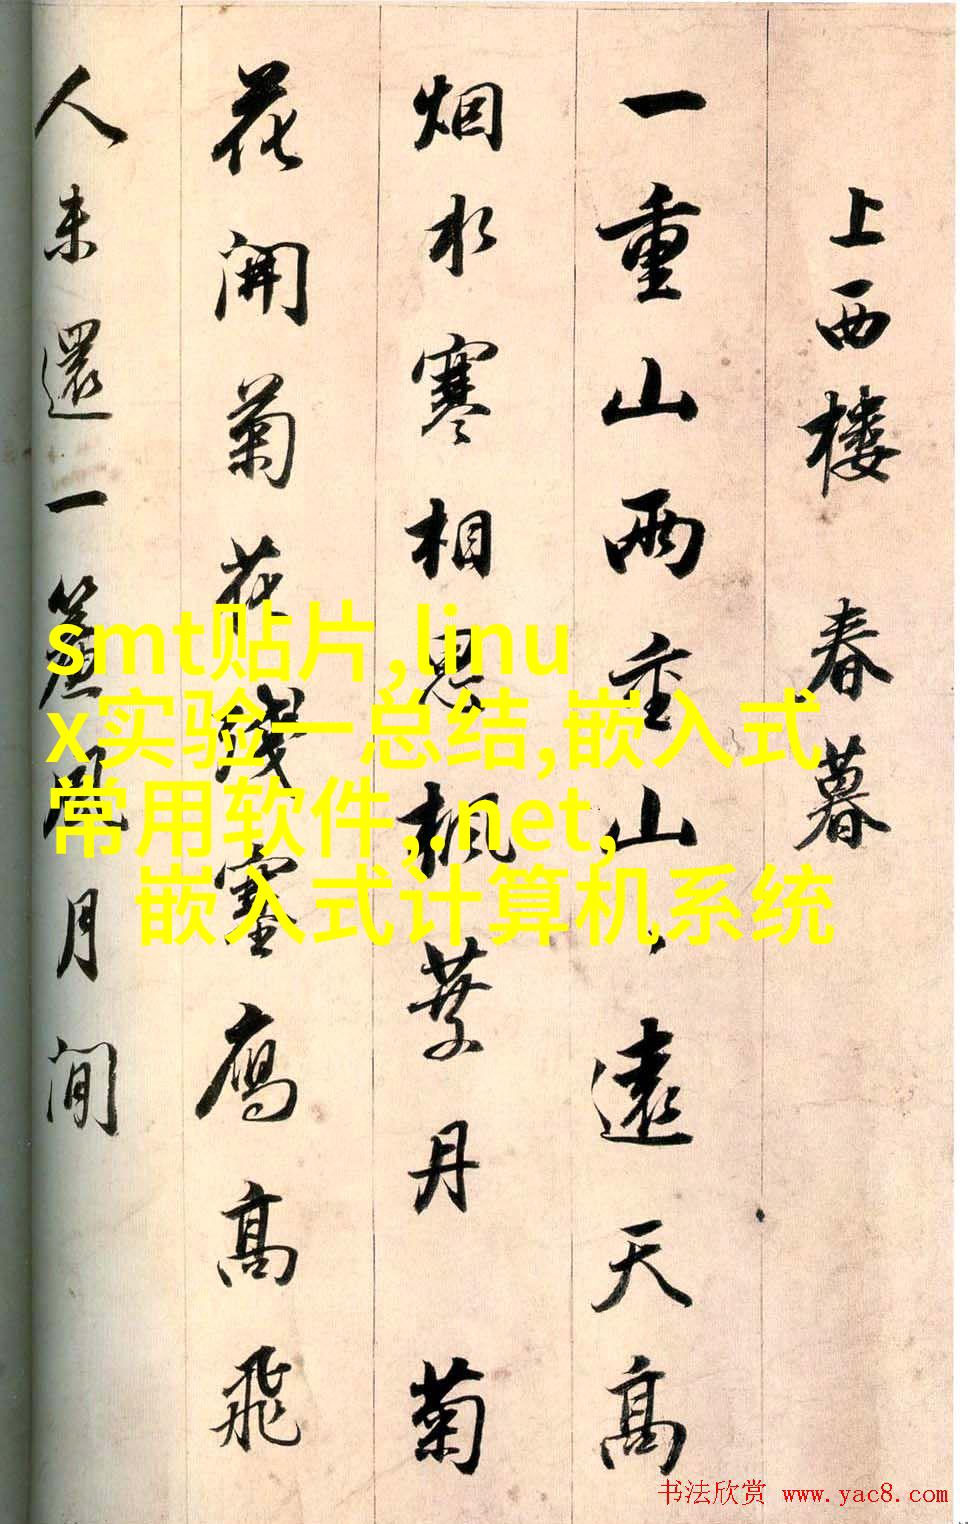 上西楼 春暮
一重山兩重山、遠天高
烟水寒相思楓葉丹菊
花開菊花殘塞鴈高飛
人未還一簾風月閒
smt贴片,linu
x实验一总结,嵌入式
常用软件,.net,
嵌入式计算机系统
书法欣赏 www.yac8.com